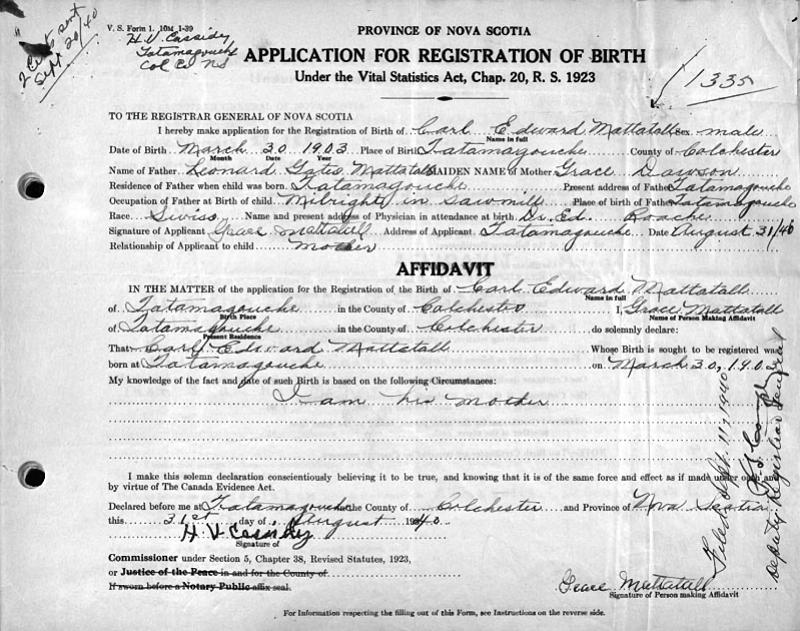 2 Certs sent
Sept 20/40
V. S. Form 1. 10M 1-39
H. V. Cassidy
Tatamagouche
Col Co NS
PROVINCE OF NOVA SCOTIA
APPLICATION FOR REGISTRATION OF BIRTH
Under the Vital Statistics Act, Chap. 20, R. S. 1923
1335
TO THE REGISTRAR GENERAL OF NOVA SCOTIA
I hereby make application for the Registration of Birth of Carl Edward Mattatall Sex male
Name in full
Date of Birth March 30 1903 Place of Birth Tatamagouche County of Colchester
Month Date Year
Name of Father Leonard Gates Mattatall MAIDEN NAME of Mother Grace Dawson
Residence of Father when child was born Tatamagouche Present address of Father Tatamagouche
Occupation of Father at Birth of child Milbright in sawmill Place of birth of Father Tatamagouche
Race Swiss Name and present address of Physician in attendance at birth Dr. Ed. Roache
Signature of Applicant Grace Mattatall Address of Applicant Tatamagouche Date August 31/40
Relationship of Applicant to child mother
AFFIDAVIT
IN THE MATTER of the application for the Registration of the Birth of Carl Edward Mattatall
Name in full
of Tatamagouche in the County of Colchester I, Grace Mattatall
Birth Place Name of Person Making Affidavit
of Tatamagouche in the County of Colchester do solemnly declare:
Present Residence
That Carl Edward Mattatall Whose Birth is sought to be registered was
born at Tatamagouche on March 30, 1903
My knowledge of the fact and date of such Birth is based on the following Circumstances:
I am his mother
I make this solemn declaration conscientiously believing it to be true, and knowing that it is of the same force and effect as if made under oath and
by virtue of The Canada Evidence Act.
Declared before me at Tatamagouche the County of Colchester and Province of Nova Scotia
this 31st day of August 1940
H. V. Cassidy
Signature of
Commissioner under Section 5, Chapter 38, Revised Statutes, 1923,
or Justice of the Peace in and for the County of
If sworn before a Notary Public affix seal.
Grace Mattatall
Signature of Person making Affidavit
For Information respecting the filling out of this Form, see Instructions on the reverse side.
Filed Sept. 11, 1940
Deputy Registrar General